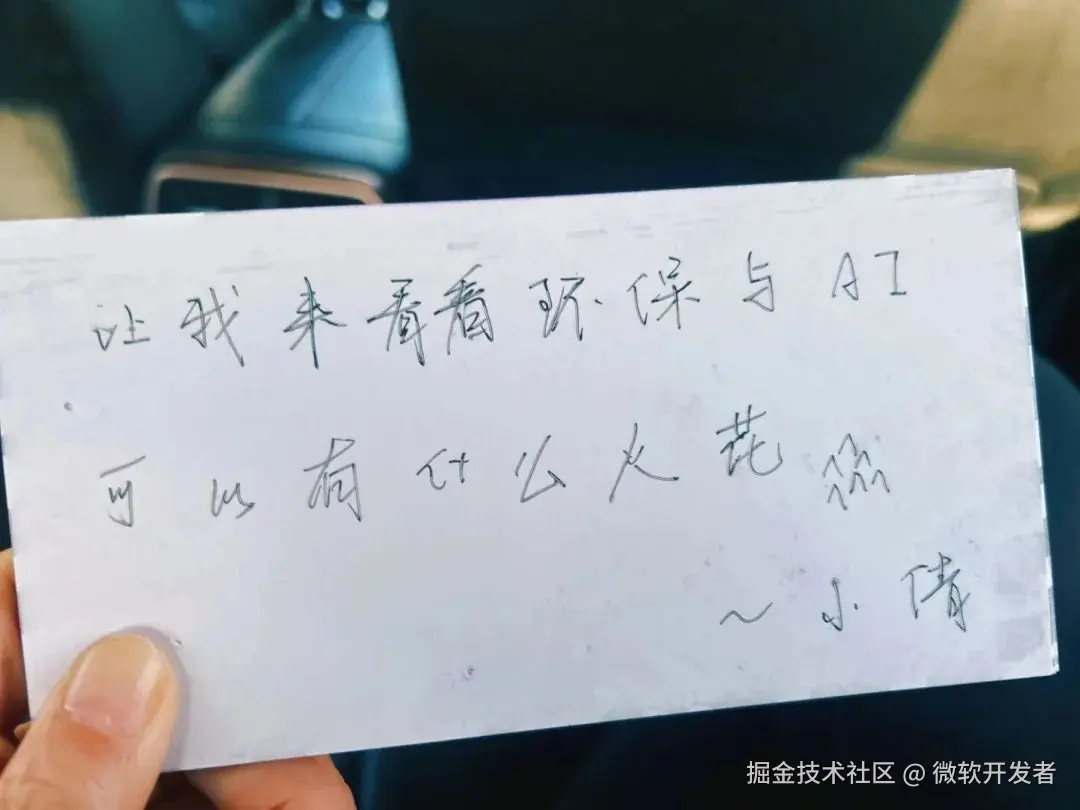 让我来看看环保与AI
可以有什么火花
~小倩
掘金技术社区 @ 微软开发者